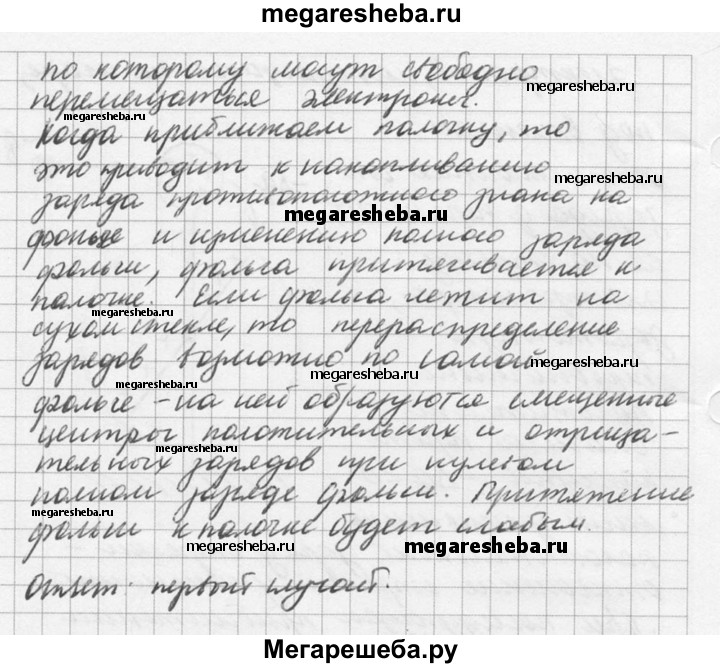 megaresheba.ru
по которому могут свободно
megaresheba.ru
перемещаться электроны.
Когда приближаем палочку, то
это приводит к накапливанию
megaresheba.ru
заряда противоположного знака на
megaresheba.ru
фольге и изменению полного заряда
фольги, фольга притягивается к
палочке. Если фольга лежит на
сухом стекле, то перераспределение
зарядов возможно по самой
megaresheba.ru
megaresheba.ru
megaresheba.ru
фольге - на ней образуются смещенные
центры положительных и отрица-
megaresheba.ru
тельных зарядов при нулевом
полном заряде фольги. Притяжение
megaresheba.ru
фольги к палочке будет слабым.
megaresheba.ru
megaresheba.ru
Ответ: первый случай.
Мегарешеба.ру